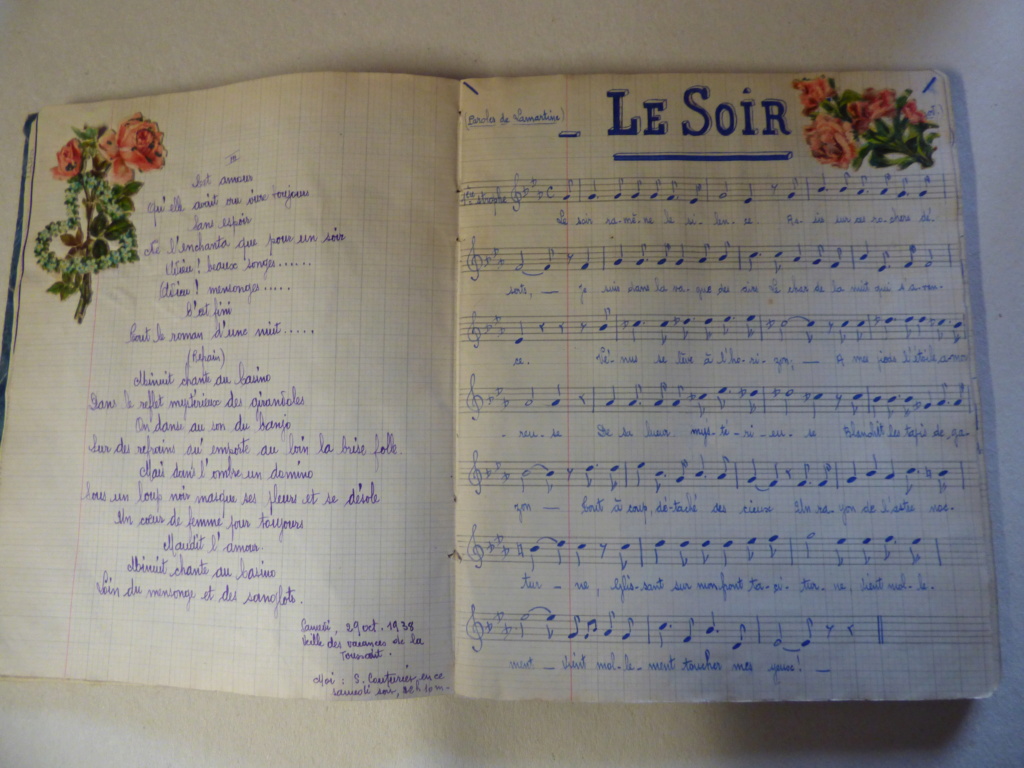 III
Cet amour
Qu'elle avait cru vivre toujours
Sans espoir
Ne l'enchanta que pour un soir
Adieu ! beaux songes......
Adieu ! mensonges.....
C'est fini
Tout le roman d'une nuit.....
(Refrain)
Minuit chante au Casino
Dans le reflet mystérieux des girandoles
On danse au son du banjo
Sur des refrains qu'emporte au loin la brise folle.
Mais dans l'ombre un domino
Sous un loup noir masque ses pleurs et se désole
Un cœur de femme pour toujours
Maudit l'amour.
Minuit chante au Casino
Loin du mensonge et des sanglots.
Samedi, 29 oct. 1938
Veille des vacances de la
Toussaint.
Moi : S. Couturier, en ce
samedi soir,
(Paroles de Lamartine)
LE SOIR
1re strophe
Le soir ra-mè-ne le si-len-ce. As-sis sur ces ro-chers dé-
serts, — Je suis dans la va-gue des airs Le char de la nuit qui s'a-van-
ce. Vé-nus se lève à l'ho-ri-zon, — A mes pieds l'étoile a-mou-
reu-se De sa lueur mys-té-ri-eu-se Blanchit les tapis de ga-
zon — Tout à coup, dé-taché des cieux Un ra-yon de l'astre noc-
tur-ne, Glis-sant sur mon front ta-ci-tur-ne, Vient mol-le-
ment — Vient mol-le-ment toucher mes yeux ! —